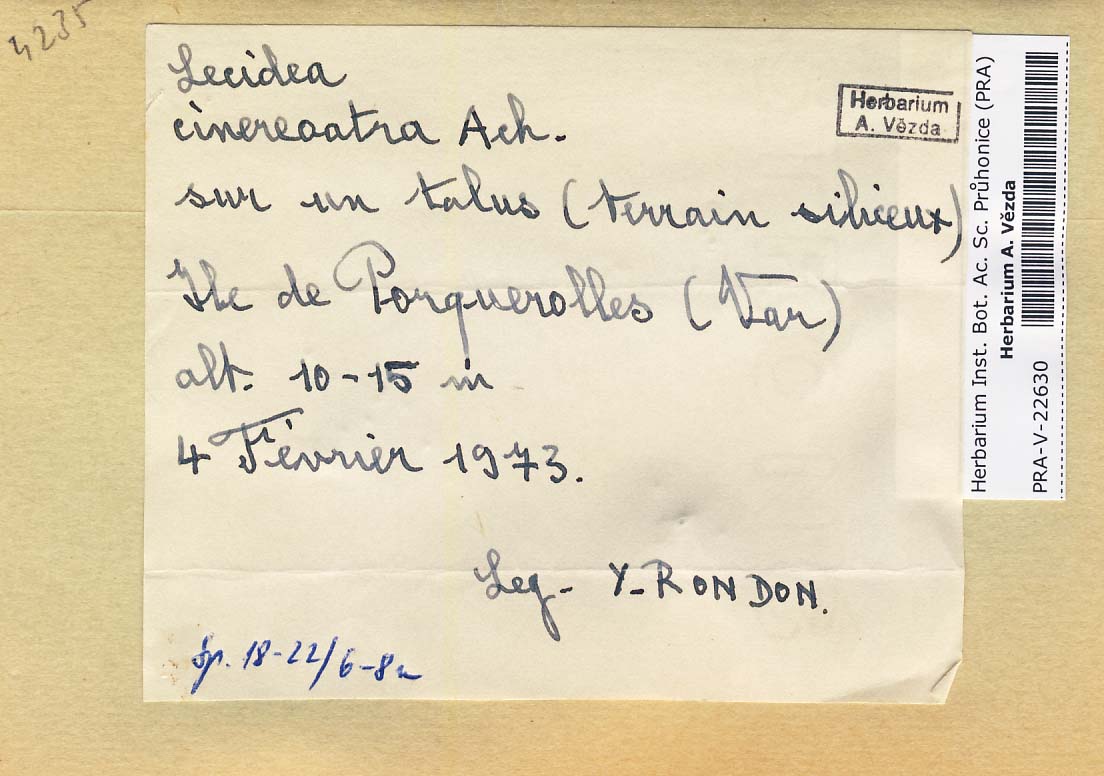 4235
Lecidea
cinereoatra Ach.
Herbarium
A. Vězda
sur un talus (terrain siliceux)
Ile de Porquerolles (Var)
alt. 10-15 m
4 Février 1973.
Leg. Y. RONDON.
Sp. 18-22/6-8u
Herbarium Inst. Bot. Ac. Sc. Průhonice (PRA)
Herbarium A. Vězda
PRA-V-22630